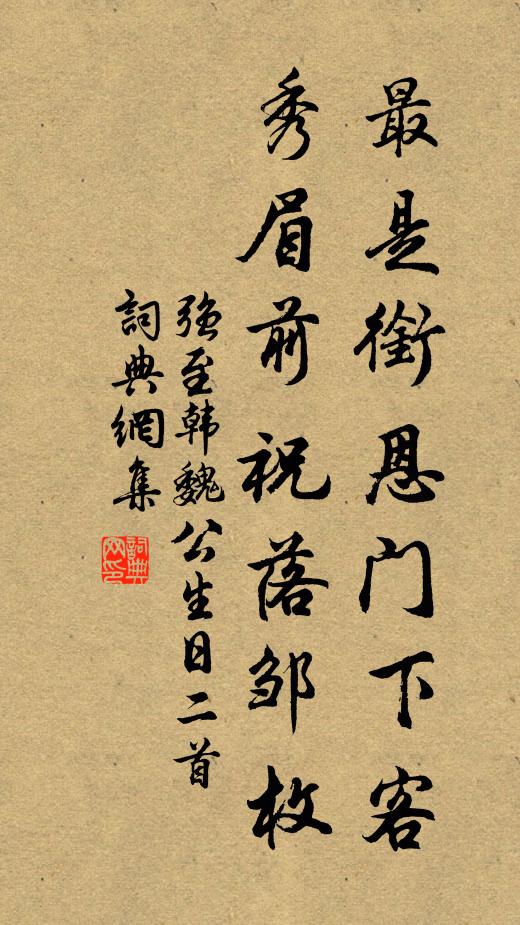 最是銜恩門下客
秀眉前祝落邹枚
強至韩魏公生日二首
詞典網集
詞典网印